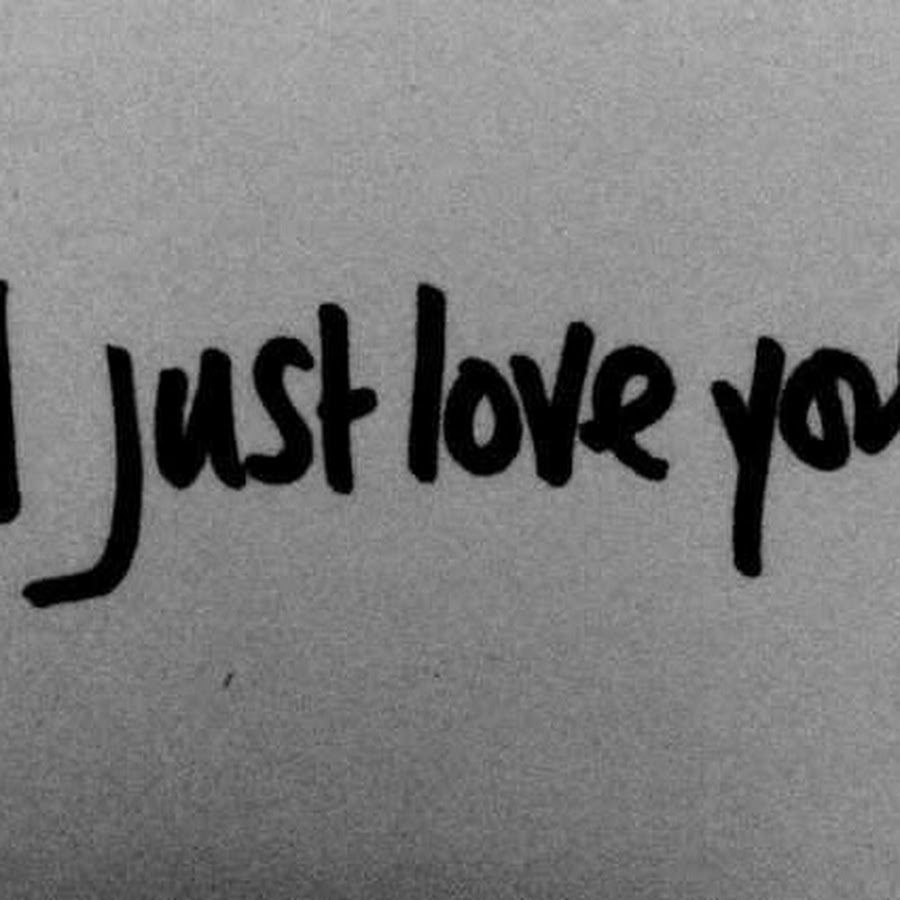 I just love you